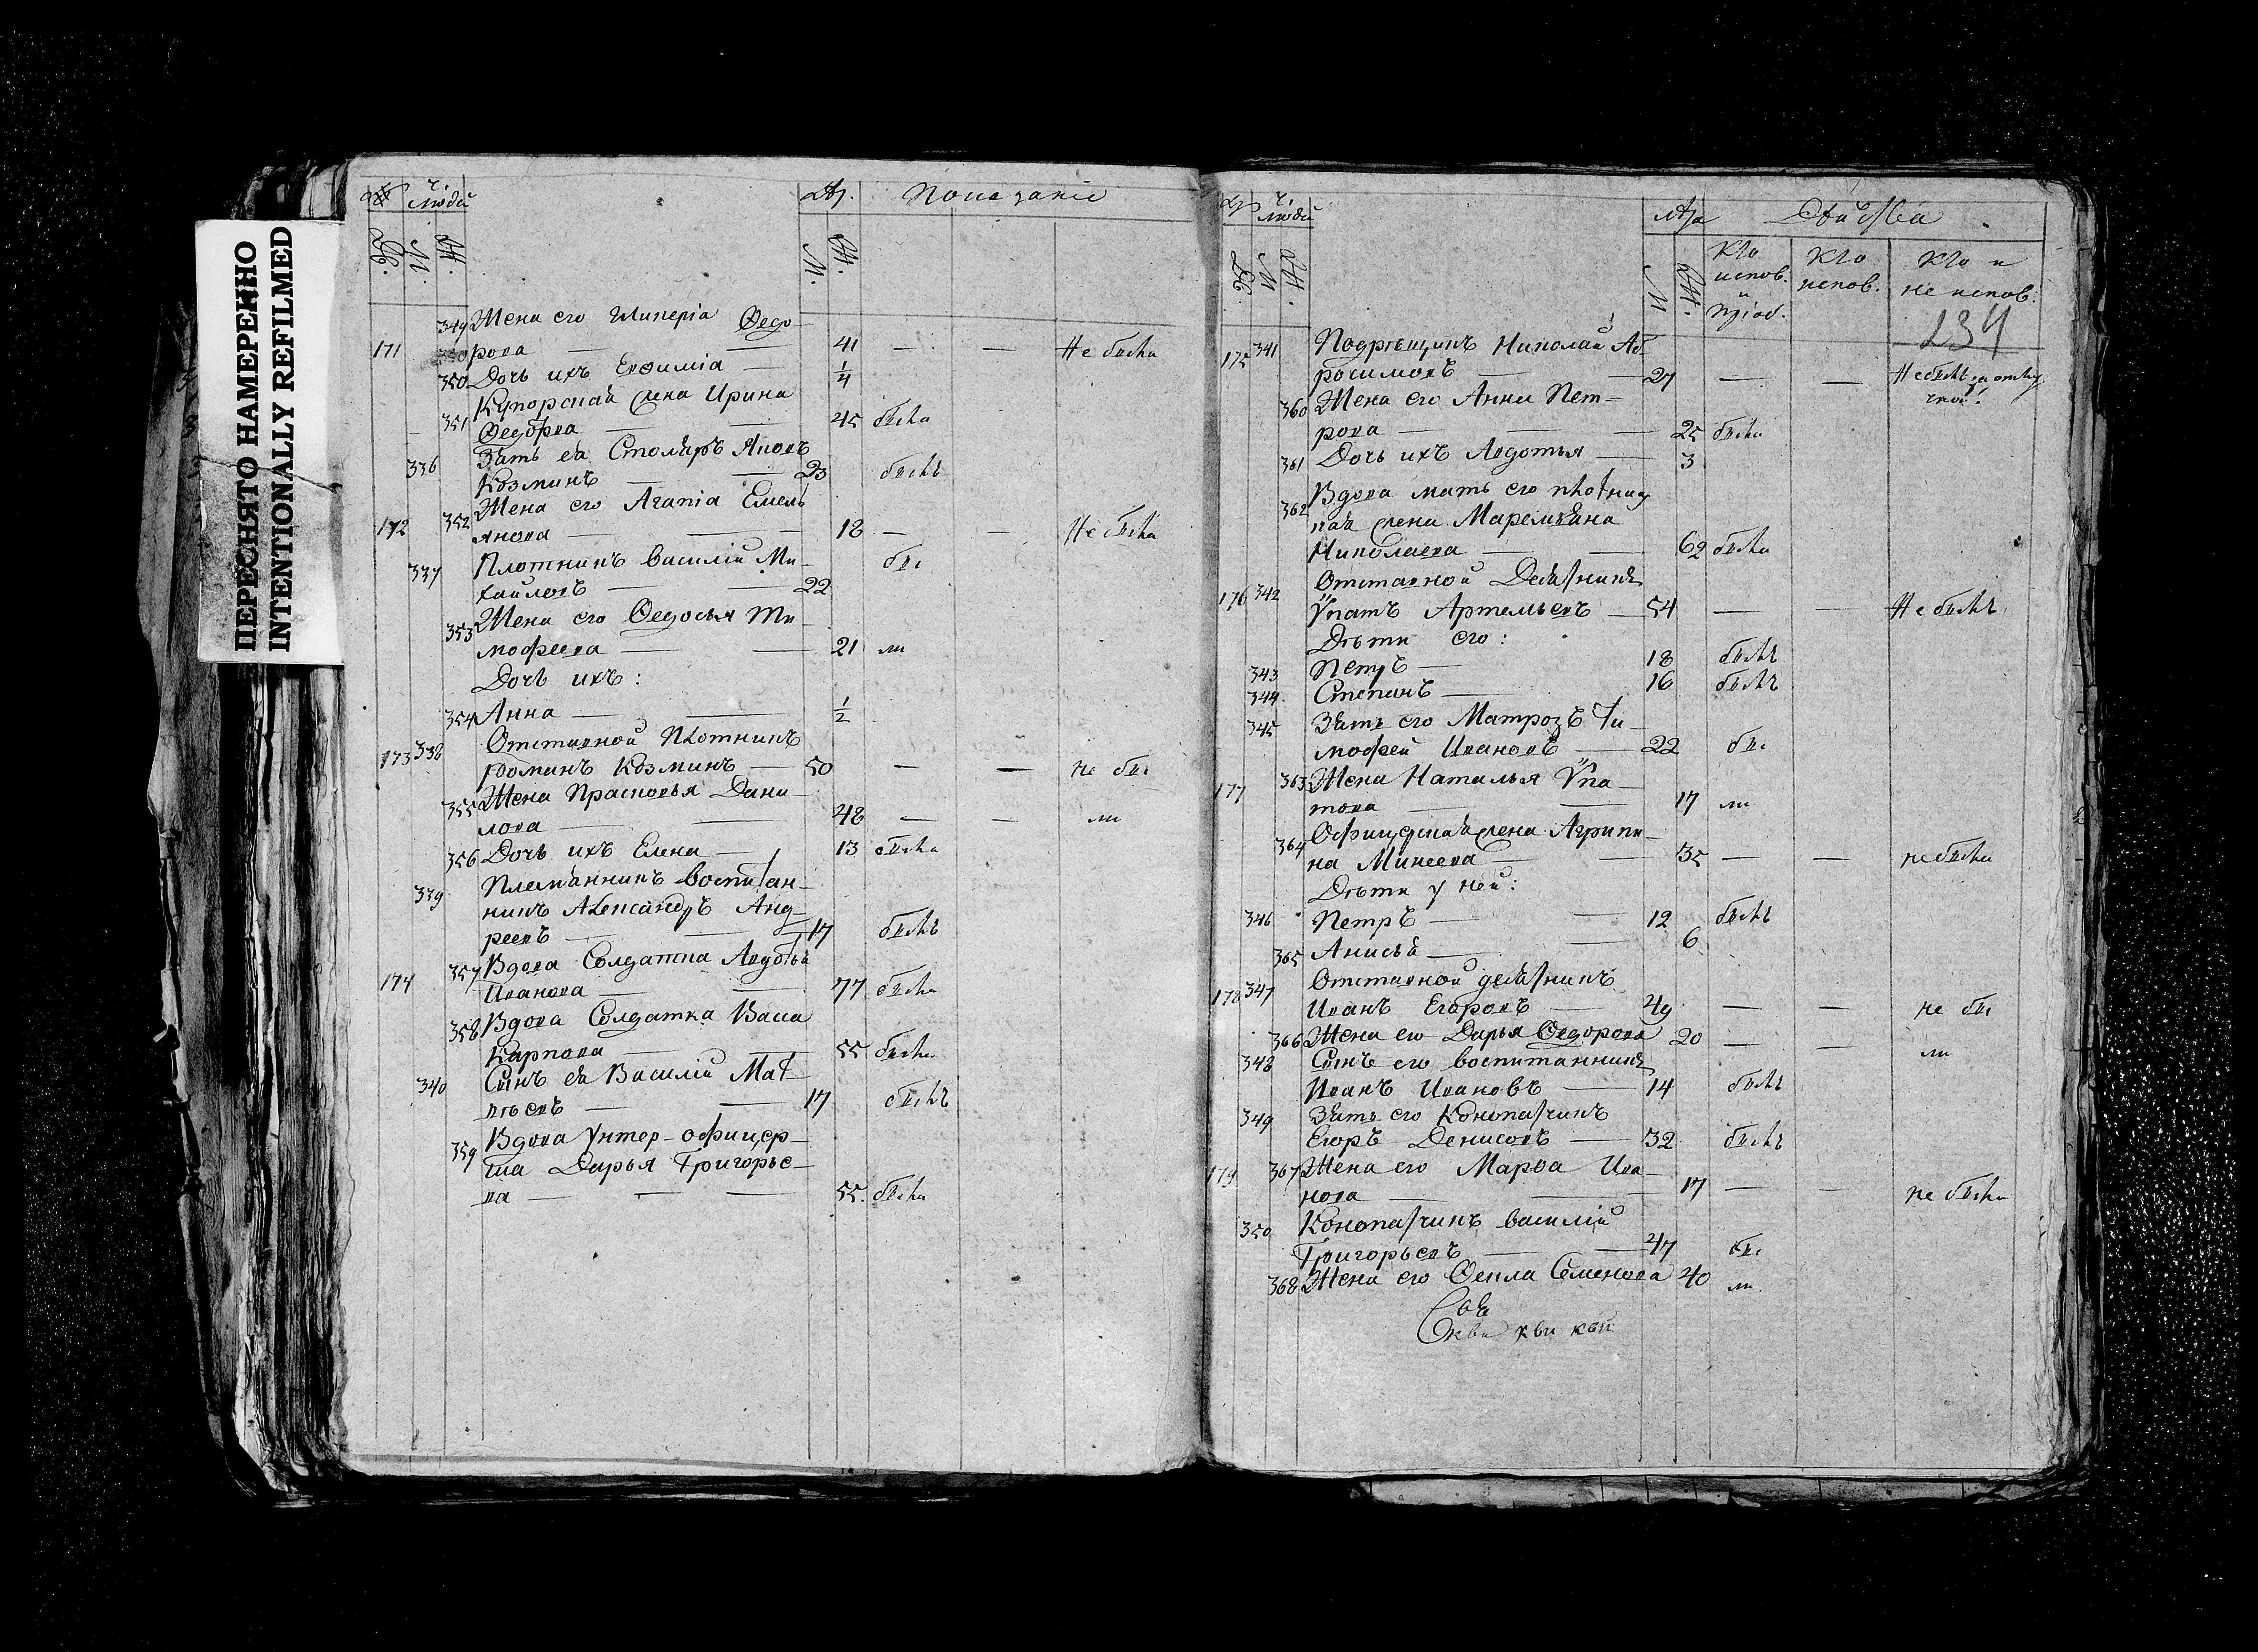 ПЕРЕСНЯТО НАМЕРЕННО
INTENTIONALLY REFILMED
Ч. людей
М.
Показаніе
М.
349 Жена его Гликеріа Ѳедо-
171 рова — — 41 — — Не была
350 Дочь ихъ Евфиміа — 1/4
Купорскаѧ жена Ирина
351 Ѳедорова — — 45 была
336 Зѧть еѧ Столѧръ Яковъ
Козминъ — — 23 былъ
352 Жена его Агапіа Емель
172 янова — — 18 — — Не была
337 Плотникъ Василій Ми-
хайловъ — — 22 бы
353 Жена его Ѳедосья Ти-
мофеева — — 21 ли
Дочь ихъ:
354 Анна — — 1/2
Отставной Плотникъ
173 338 Романъ Козминъ — 50 — — не бы
355 Жена Прасковья Дани-
лова — — 48 — — ли
356 Дочь ихъ Елена — 13 была
339 Племѧнникъ воспитан-
никъ Александръ Анд-
реевъ — — 17 былъ
357 Вдова Солдатка Авдотьѧ
174 Иванова — — 77 была
358 Вдова Солдатка Васса
Карпова — — 55 была
340 Сынъ еѧ Василій Мат-
вѣевъ — — 17 былъ
359 Вдова Унтер-офицер-
ша Дарья Григорье-
ва — — — 55. была
Ч. людей
М
Лѣта
М
Дѣйства
Кто испов. и пріоб.
Кто испов.
Кто и не испов:
234
175 341 Подрѣщикъ Николай Аб-
росимовъ — — 27 — — Не былъ за отлу
чкой.
360 Жена его Анна Пет-
рова — — — 25 была
361 Дочь ихъ Авдотья — 3
Вдова мать его плотниц
362 каѧ жена Маремьѧна
Николаева — — 62 была
Отставной Десѧтникъ
176 342 Ѵпатъ Артемьевъ — 54 — — Не былъ
Дѣти его:
343 Петръ — 18 былъ
344 Степанъ — 16 былъ
345 Зѧть его Матрозъ Ти-
мофей Ивановъ — 22 бы
177 363 Жена Наталья Ѵпа-
това — — 17 ли
364 Офицерскаѧ жена Агрипи-
на Минеева — — 35 — — не была
Дѣти у ней:
346 Петръ — — 12 былъ
365 Анисьѧ — — 6
Отставной десѧтникъ
178 347 Иванъ Егоровъ — 49 — — не бы
366 Жена его Дарья Ѳедорова 20 — — ли
348 Сынъ его воспитанникъ
Иванъ Ивановъ — 14 былъ
349 Зѧть его Конопатчикъ
Егоръ Денисовъ — 32 былъ
179 367 Жена его Марѳа Ива-
нова — — — 17 — — не была
350 Конопатчикъ Василій
Григорьевъ — — 47 бы
368 Жена его Ѳекла Семенова 40 ли